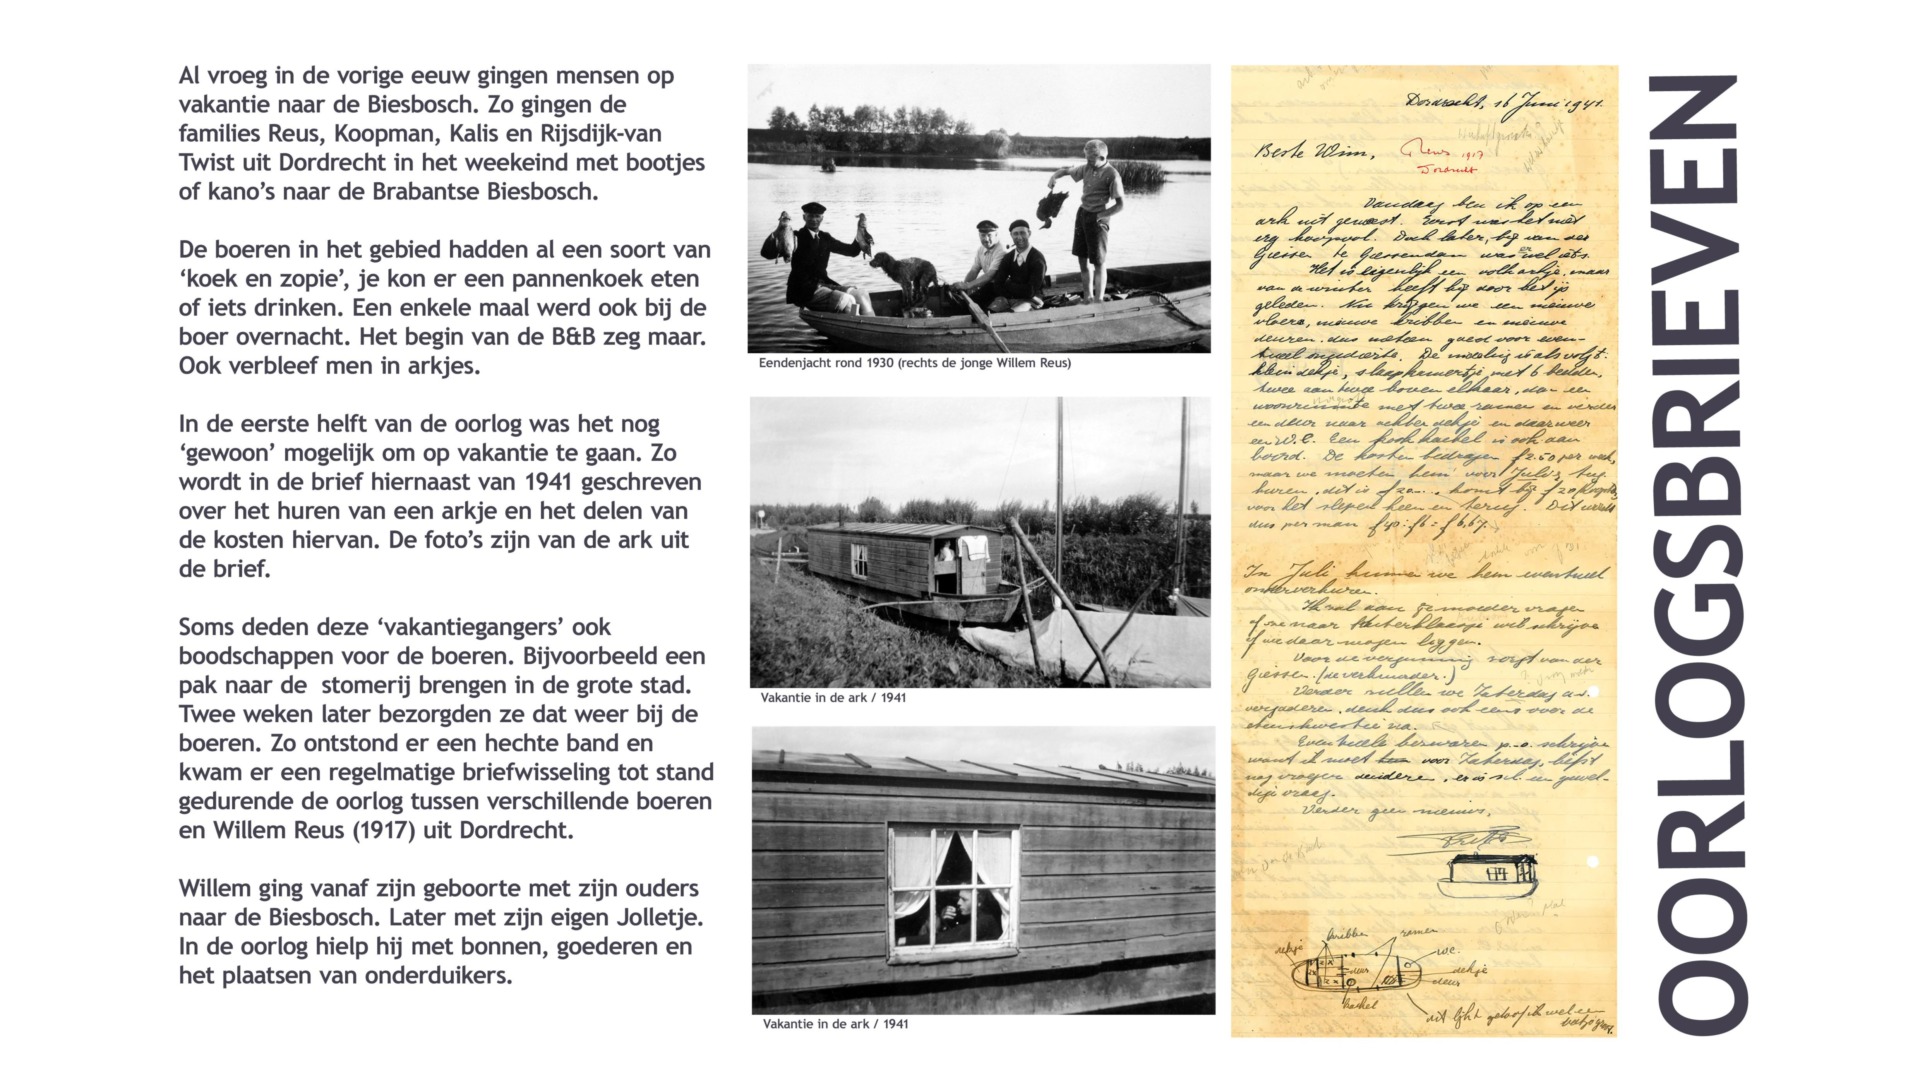 Al vroeg in de vorige eeuw gingen mensen op
vakantie naar de Biesbosch. Zo gingen de
families Reus, Koopman, Kalis en Rijsdijk-van
Twist uit Dordrecht in het weekeind met bootjes
of kano’s naar de Brabantse Biesbosch.
De boeren in het gebied hadden al een soort van
‘koek en zopie’, je kon er een pannenkoek eten
of iets drinken. Een enkele maal werd ook bij de
boer overnacht. Het begin van de B&B zeg maar.
Ook verbleef men in arkjes.
In de eerste helft van de oorlog was het nog
‘gewoon’ mogelijk om op vakantie te gaan. Zo
wordt in de brief hiernaast van 1941 geschreven
over het huren van een arkje en het delen van
de kosten hiervan. De foto’s zijn van de ark uit
de brief.
Soms deden deze ‘vakantiegangers’ ook
boodschappen voor de boeren. Bijvoorbeeld een
pak naar de  stomerij brengen in de grote stad.
Twee weken later bezorgden ze dat weer bij de
boeren. Zo ontstond er een hechte band en
kwam er een regelmatige briefwisseling tot stand
gedurende de oorlog tussen verschillende boeren
en Willem Reus (1917) uit Dordrecht.
Willem ging vanaf zijn geboorte met zijn ouders
naar de Biesbosch. Later met zijn eigen Jolletje.
In de oorlog hielp hij met bonnen, goederen en
het plaatsen van onderduikers.
Eendenjacht rond 1930 (rechts de jonge Willem Reus)
Vakantie in de ark / 1941
Vakantie in de ark / 1941
Dordrecht, 16 Juni 1941.
Beste Wim,
Reus 1917
Dordrecht
Vandaag ben ik op een
ark uit geweest. Eerst was het niet
erg hoopvol. Doch later, bij van der
Giessen te Giessendam was er wel iets.
Het is eigenlijk een volk arkje, maar
van de winter heeft hij door het ijs
geleden. Nu krijgen we een nieuwe
vloer, nieuwe kribben en nieuwe
deuren, dus meteen goed voor even-
tueel ongedierte. De indeling is als volgt:
klein dekje, slaapkamertje met 6 bedden,
twee aan twee boven elkaar, dan een
woonruimte met twee ramen en verder
een deur naar achter dekje en daar weer
een W.C. Een kook kachel is ook aan
boord. De kosten bedragen f 2.50 per week,
maar we moeten hem voor Juli
huren, dit is f 20.., komt bij f 20
voor het slepen heen en terug. Dit wordt
dus per man f 40 : f 6 = f 6,67.
In Juli kunnen we hem eventueel
onderverhuren.
Ik zal aan je moeder vragen
of ze naar wil schrijven
of we daar mogen liggen.
Voor de vergunning zorgt van der
Giessen. (de verhuurder.)
Verder zullen we Zaterdag a.s.
vergaderen, denk dus ook eens voor de
na.
Eventuele bezwaren p.o. schrijven
want ik moet voor Zaterdag, liefst
nog vroeger, er is n.l. een gewel-
dige vraag.
Verder geen nieuws,
dekje
kribben
ramen
w.c.
deur
dekje
deur
kachel
dit lijkt geloof ik wel een
OORLOGSBRIEVEN